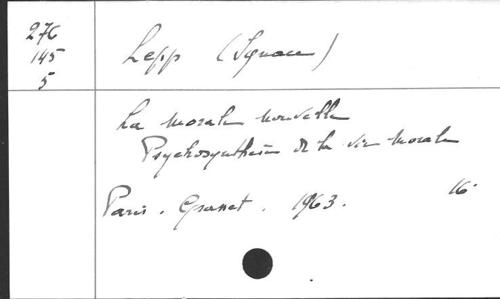 276
145
5
Lepp (Ignace)
La morale nouvelle
Psychosynthèse de la vie morale
Paris. Grasset. 1963. 16°